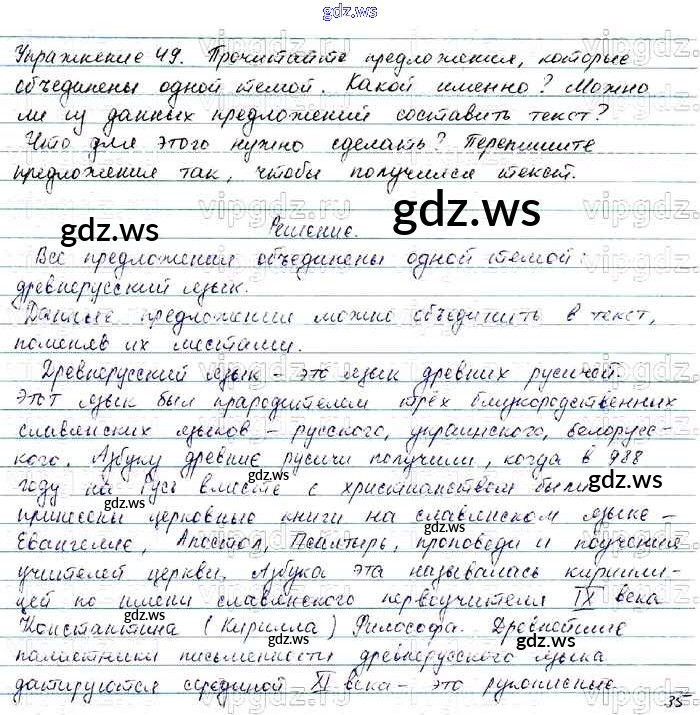 gdz.ws
Упражнение 49. Прочитайте предложения, которые
объединены одной темой. Какой именно? Можно
ли из данных предложений составить текст?
Что для этого нужно сделать? Перепишите
предложения так, чтобы получился текст.
gdz.ws
gdz.ws
Решение.
Все предложения объединены одной темой:
древнерусский язык.
Данные предложения можно объединить в текст,
поменяв их местами.
Древнерусский язык - это язык древних русичей.
Этот язык был прародителем трёх близкородственных
славянских языков - русского, украинского, белорусс-
кого. Азбуку древние русичи получили, когда в 988
году на Русь вместе с христианством были
gdz.ws
gdz.ws
принесены церковные книги на славянском языке -
Евангелие, Апостол, Псалтырь, проповеди и поучения
учителей церкви. Азбука эта называлась кирилли-
цей по имени славянского первоучителя IX века
Константина (Кирилла) Философа. Древнейшие
gdz.ws
gdz.ws
памятники письменности древнерусского языка
датируются серединой XI века - это рукописные
35